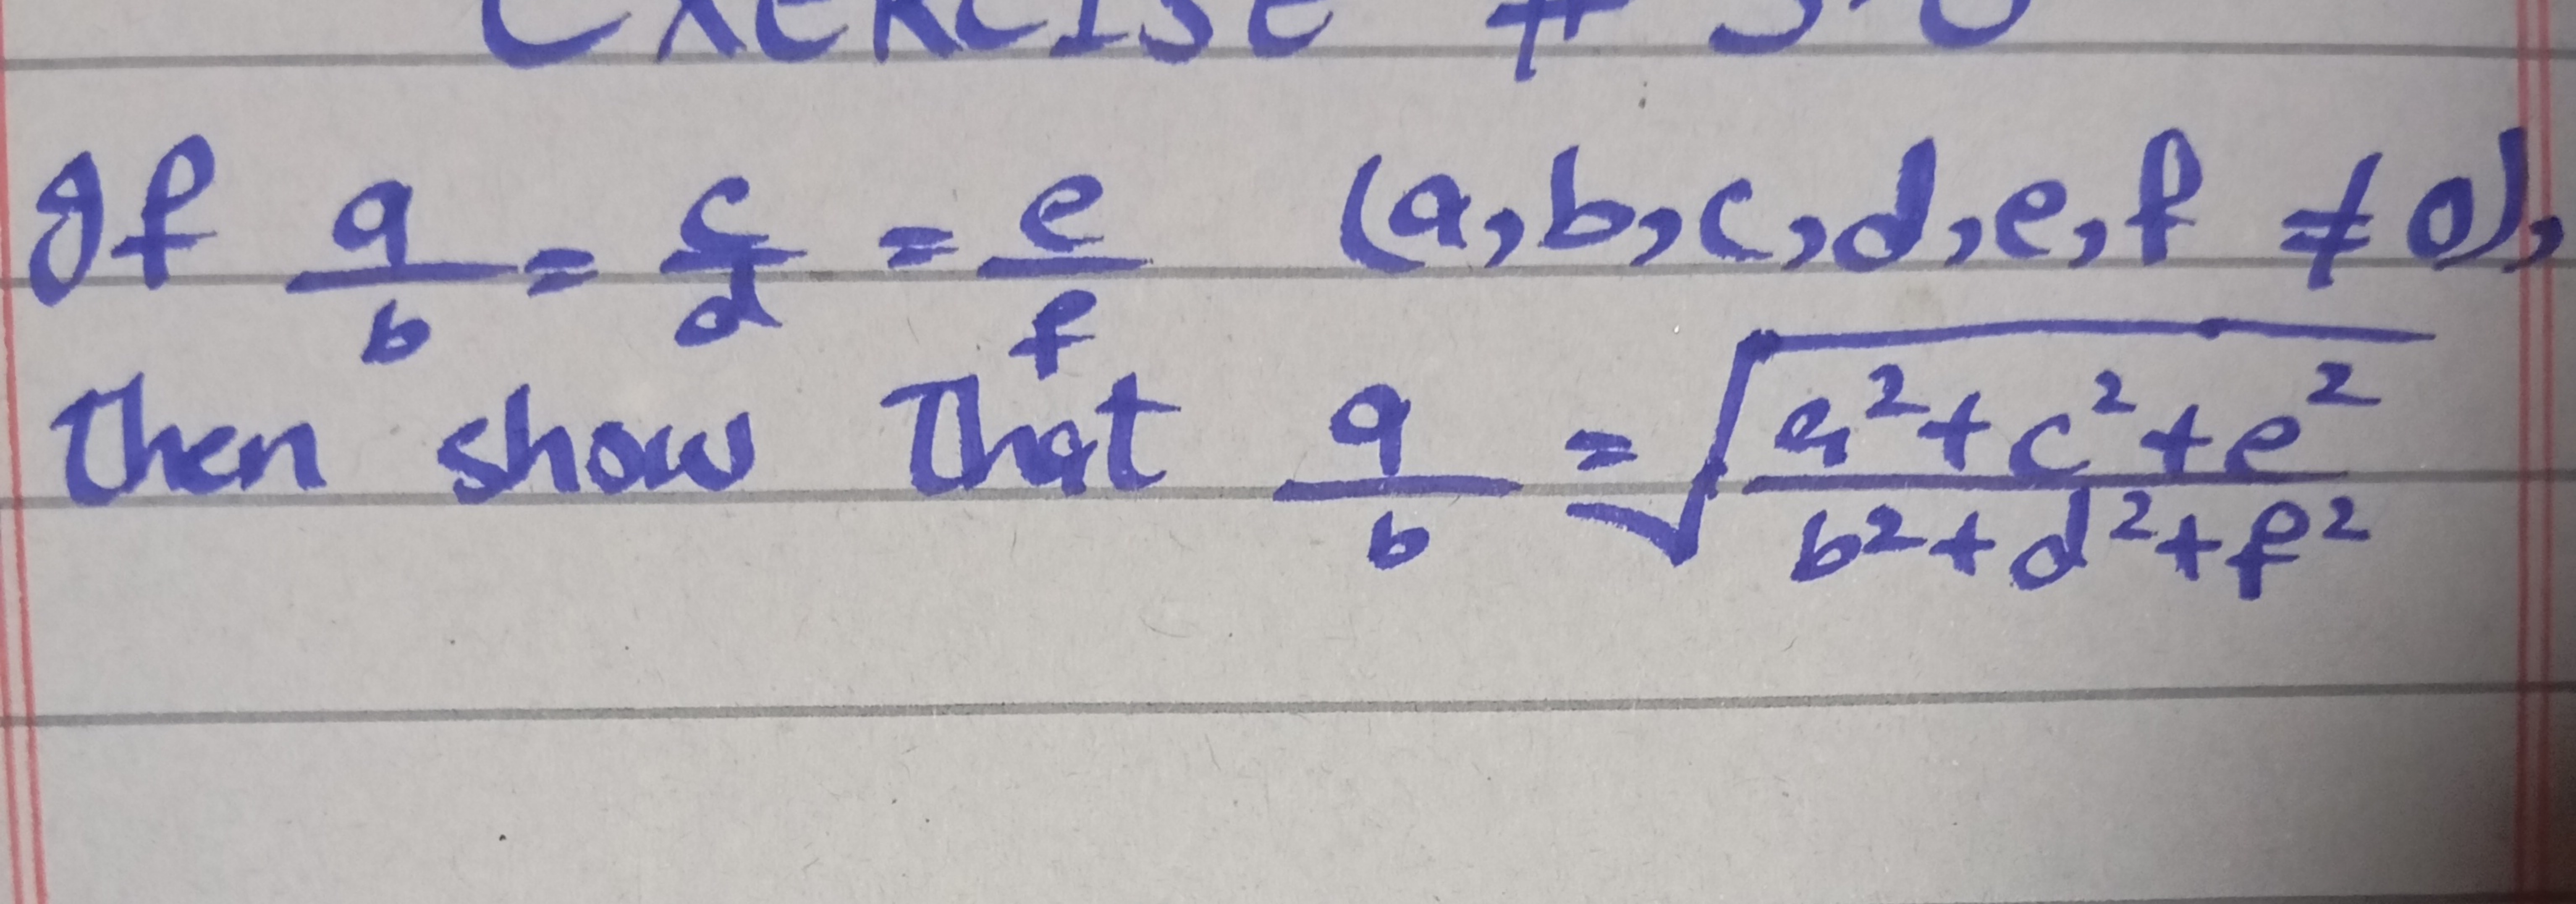 EXERCISE #
If a/b = c/d = e/f (a,b,c,d,e,f ≠ 0),
then show that a/b = √((a²+c²+e²)/(b²+d²+f²))